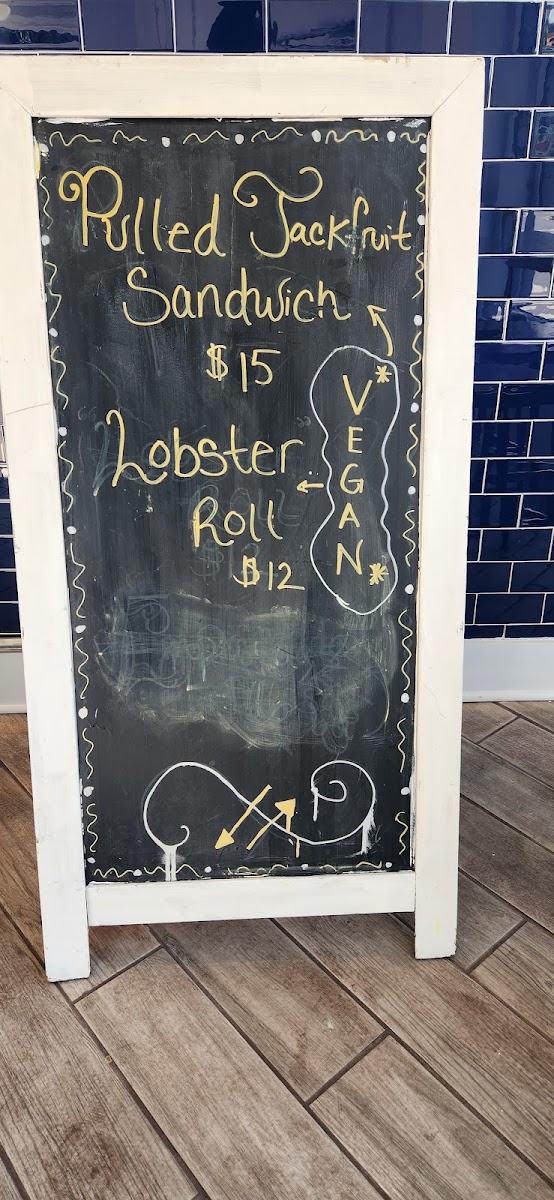 Pulled Jackfruit
Sandwich
$15
"Lobster"
Roll
$12
*VEGAN*